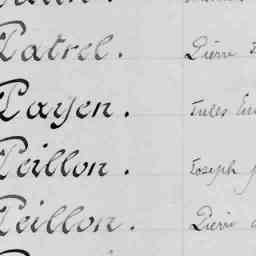 Patrel. Pierre
Payen. Jules
Peillon. Joseph
Peillon. Pierre